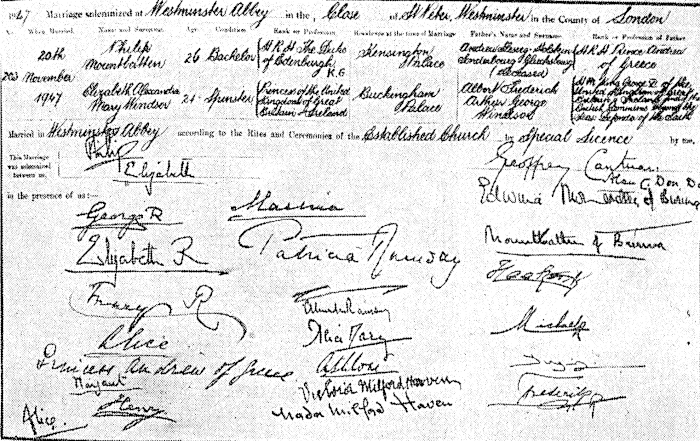 1947 Marriage solemnized at Westminster Abbey in the Close of St Peter, Westminster in the County of London
When Married. Name and Surname. Age Condition Rank or Profession. Residence at the time of Marriage Father's Name and Surname. Rank or Profession of Father
20th November 1947
Philip Mountbatten
26
Bachelor
H.R.H. The Duke of Edinburgh K.G
Kensington Palace
Andrew
deceased
H R H Prince Andrew of Greece
Elizabeth Alexandra Mary Windsor
21
Spinster
Princess of the United Kingdom of Great Britain & Ireland
Buckingham Palace
Albert Frederick Arthur George Windsor
H.M. King George
Married in Westminster Abbey according to the Rites and Ceremonies of the Established Church by Special Licence by me,
This Marriage was solemnized between us,
Philip
Elizabeth
Geoffrey Cantuar:
Alan C. Don. D.
in the presence of us:
Edwina Mountbatten of Burma
George R
Elizabeth R
Patricia Ramsay
Mountbatten of Burma
Mary R
Alexander Ramsay
Alice
Alice Mary
Michael
Princess Andrew of Greece
Athlone
Margaret
Victoria Milford Haven
Henry
Nada Milford Haven
Frederica
Alice.